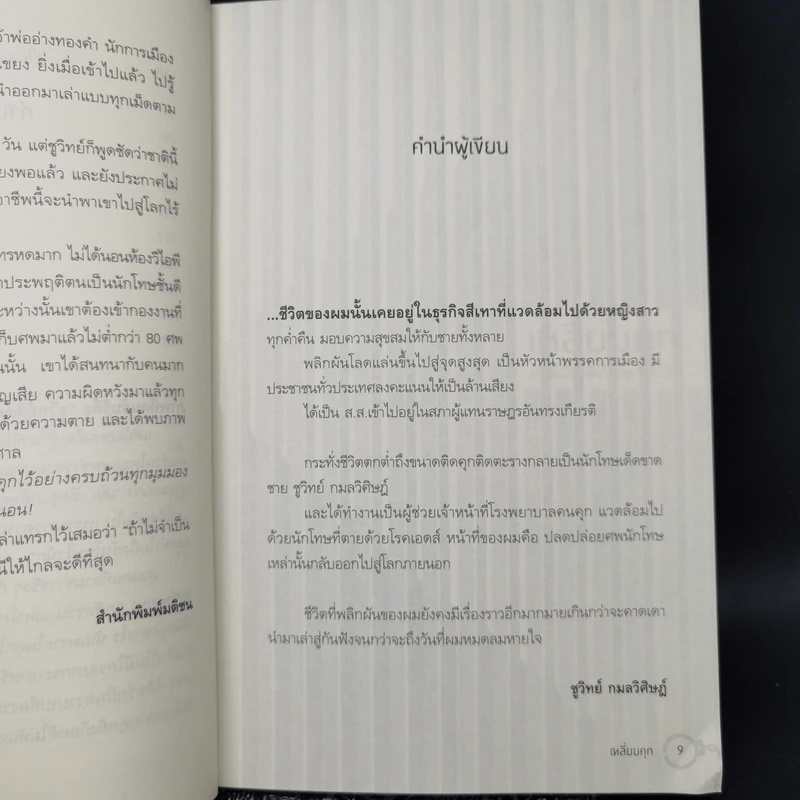 ว้าพ่ออ่างทองคำ นักการเมือง
เขยง ยิ่งเมื่อเข้าไปแล้ว ไปรู้
นำออกมาเล่าแบบทุกเม็ดตาม
วัน แต่ชูวิทย์ก็พูดชัดว่าชาตินี้
ยงพอแล้ว และยังประกาศไม่
อาชีพนี้จะนำพาเขาไปสู่โลกไร้
ทรหดมาก ไม่ได้นอนห้องวีไอพี
าประพฤติตนเป็นนักโทษชั้นดี
ะหว่างนั้นเขาต้องเข้ากองงานที่
ก็บศพมาแล้วไม่ต่ำกว่า 80 ศพ
นนั้น เขาได้สนทนากับคนมาก
ญเสีย ความผิดหวังมาแล้วทุก
ด้วยความตาย และได้พบภาพ
ศาล
คุกไว้อย่างครบถ้วนทุกมุมมอง
นอน!
ล่าแทรกไว้เสมอว่า “ถ้าไม่จำเป็น
นีให้ไกลจะดีที่สุด
สำนักพิมพ์มติชน
คำนำผู้เขียน
...ชีวิตของผมนั้นเคยอยู่ในธุรกิจสีเทาที่แวดล้อมไปด้วยหญิงสาว
ทุกค่ำคืน มอบความสุขสมให้กับชายทั้งหลาย
พลิกผันโลดแล่นขึ้นไปสู่จุดสูงสุด เป็นหัวหน้าพรรคการเมือง มี
ประชาชนทั่วประเทศลงคะแนนให้เป็นล้านเสียง
ได้เป็น ส.ส.เข้าไปอยู่ในสภาผู้แทนราษฎรอันทรงเกียรติ
กระทั่งชีวิตตกต่ำถึงขนาดติดคุกติดตะรางกลายเป็นนักโทษเด็ดขาด
ชาย ชูวิทย์ กมลวิศิษฎ์
และได้ทำงานเป็นผู้ช่วยเจ้าหน้าที่โรงพยาบาลคนคุก แวดล้อมไป
ด้วยนักโทษที่ตายด้วยโรคเอดส์ หน้าที่ของผมคือ ปลดปล่อยศพนักโทษ
เหล่านั้นกลับออกไปสู่โลกภายนอก
ชีวิตที่พลิกผันของผมยังคงมีเรื่องราวอีกมากมายเกินกว่าจะคาดเดา
นำมาเล่าสู่กันฟังจนกว่าจะถึงวันที่ผมหมดลมหายใจ
ชูวิทย์ กมลวิศิษฎ์
เหลี่ยมคุก 9